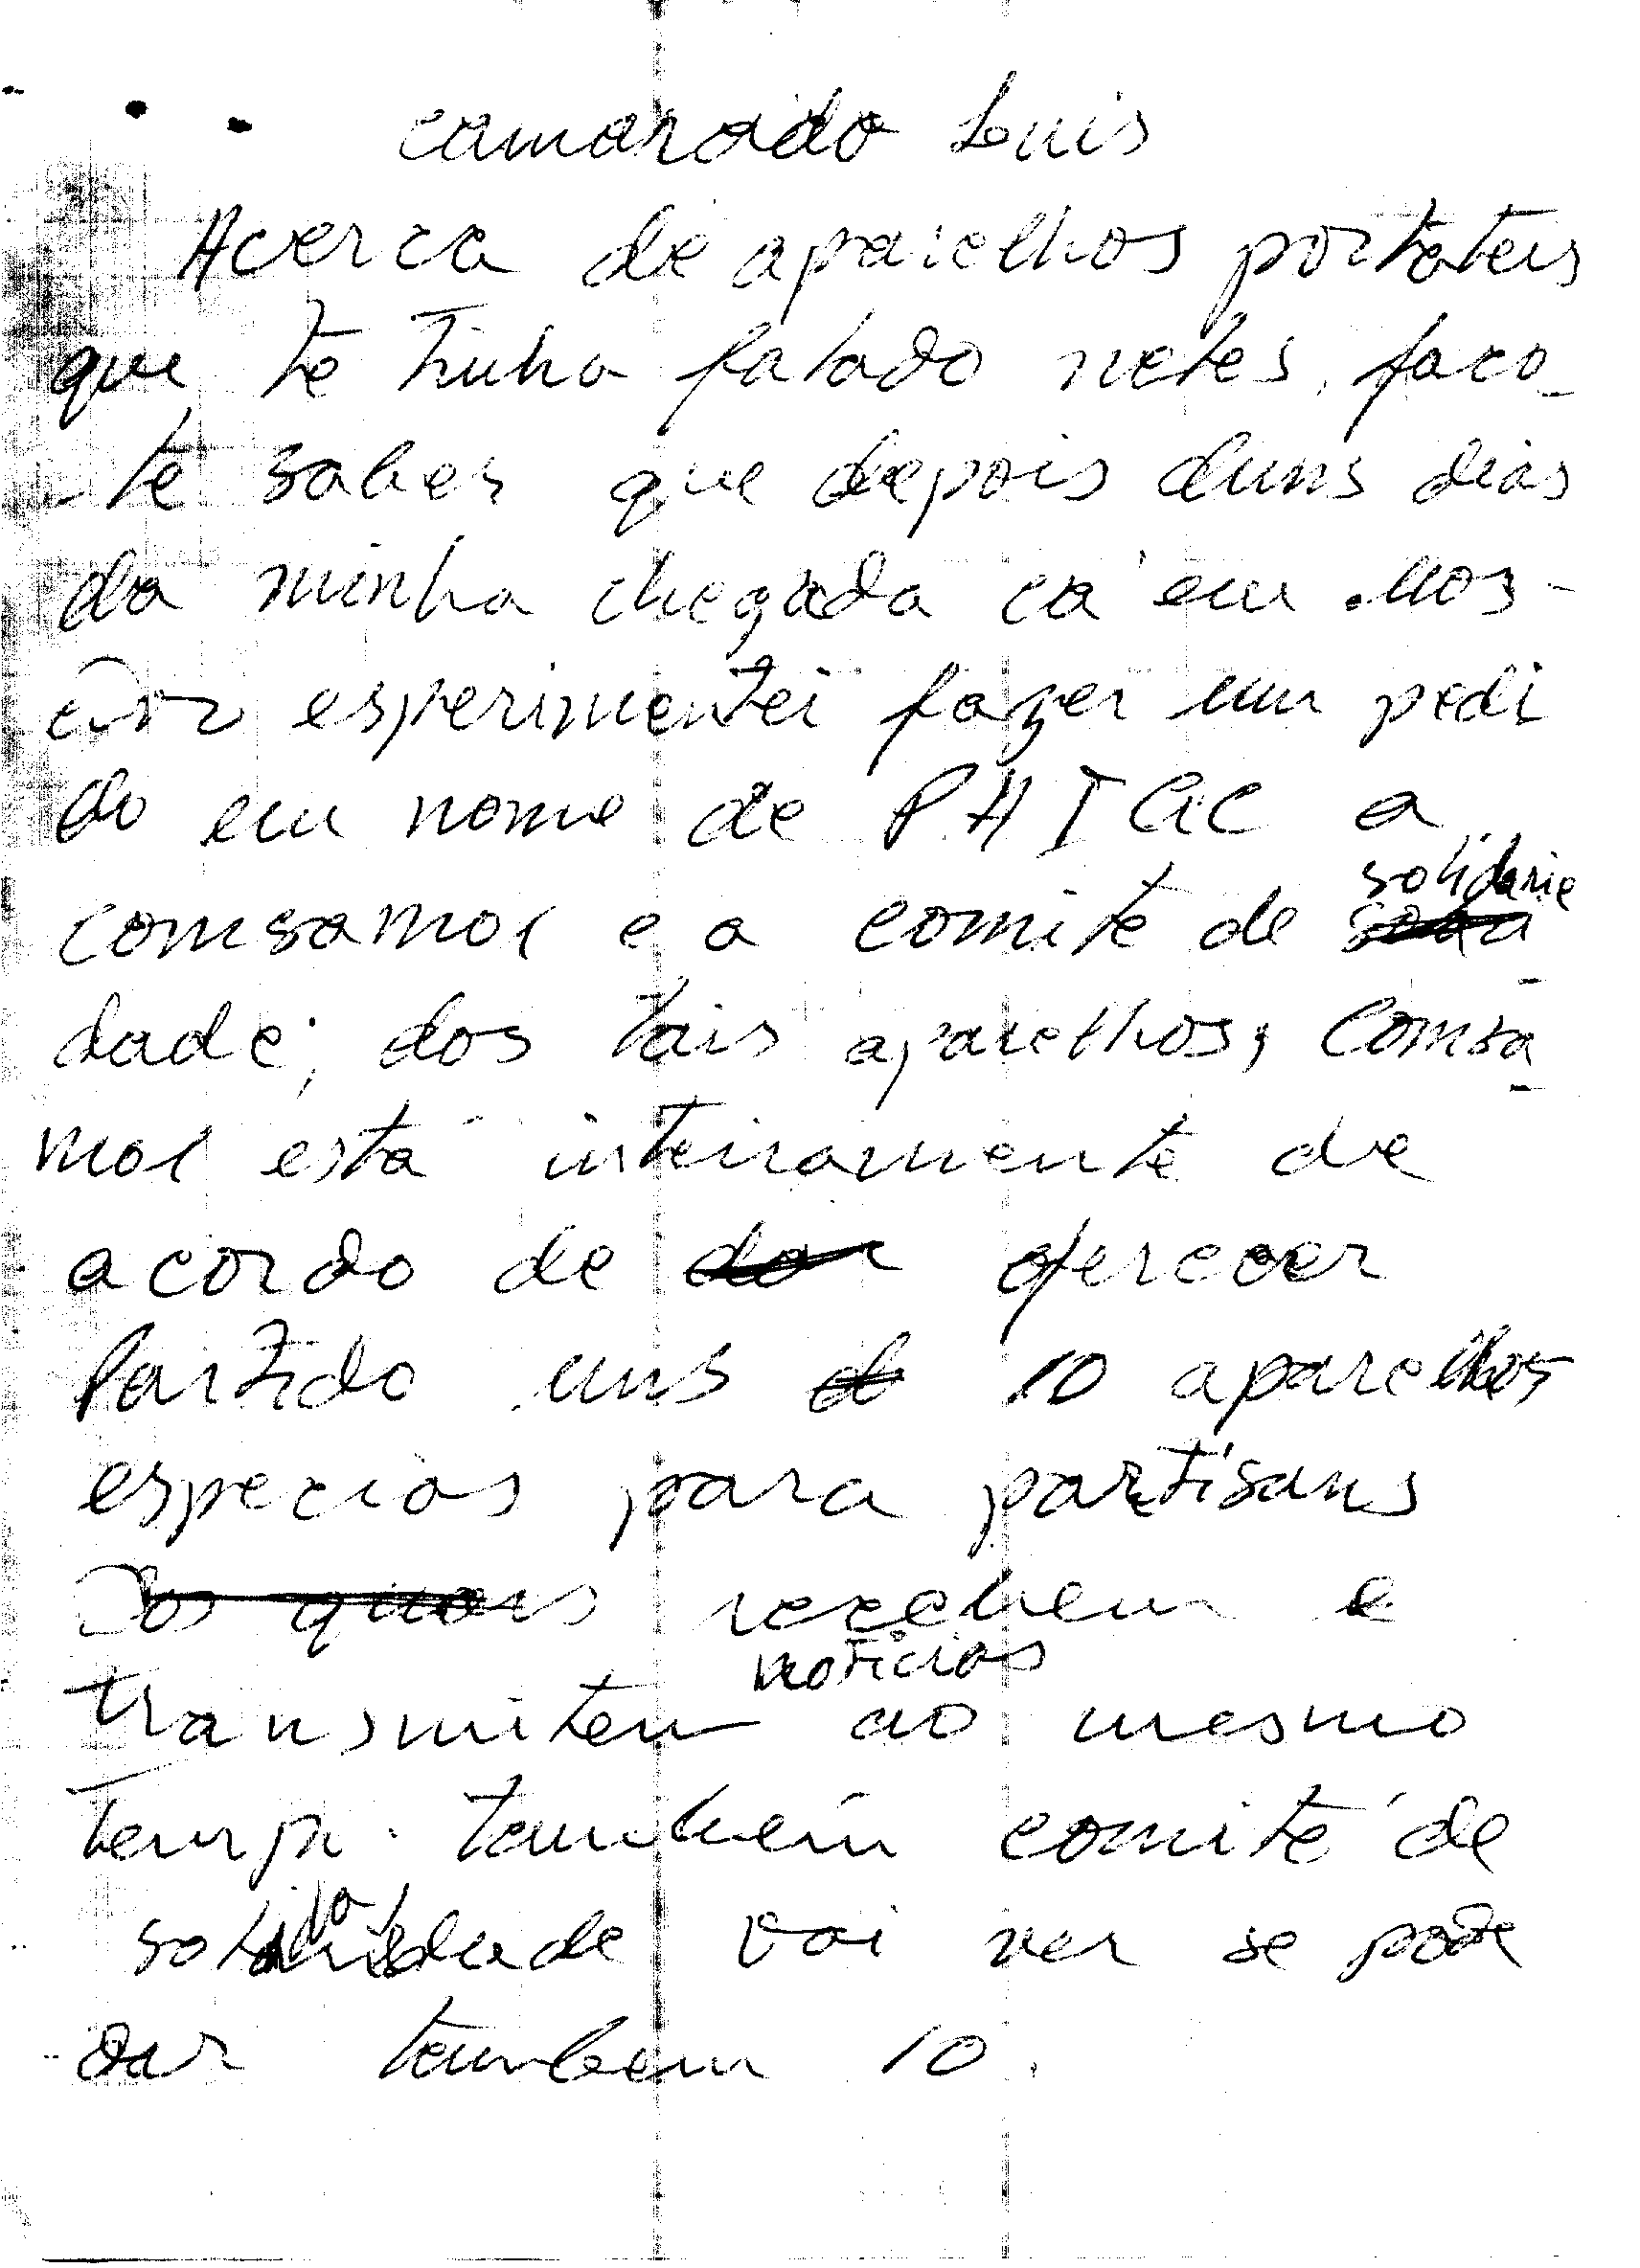 camarado Luis
Acerca de aparelhos portateis
que te tinha falado neles, faco-
-te saber que depois duns dias
da minha chegada cá em Mos-
esperimentei fazer um pedi
do em nome de PAIGC a
comsamol e a comité de solidarie
dade; dos tais aparelhos, Comsa
mol está inteiramente de
acordo de oferecer
Partido uns 10 aparelhos
especias para partisans
Dos quais recebem e
noticias
transmitem ao mesmo
tempo. também comité de
solidaridade vai ver se pode
dar tambem 10.